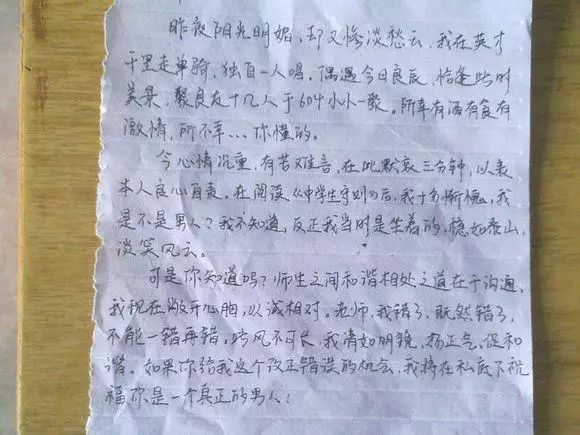 昨夜阳光明媚,却又惨淡愁云,我在英才
千里走单骑,独自一人喝,偶遇今日良辰,恰逢此时
美景,聚良友十几人于604小小一聚。所幸有酒有食有
激情,所不幸…你懂的。
今心情沉重,有苦难言,在此默哀三分钟,以表
本人良心自责。在阅读《中学生守则》后,我十分惭愧,我
是不是男人?我不知道,反正我当时是坐着的,稳如泰山,
淡笑风云。
可是你知道吗?师生之间和谐相处之道在于沟通,
我现在敞开心胸,以诚相对。老师,我错了,既然错了,
不能一错再错,此风不可长,我清如明镜,扬正气,促和
谐。如果你给我这个改正错误的机会,我将在私底下祝
福你是一个真正的男人!